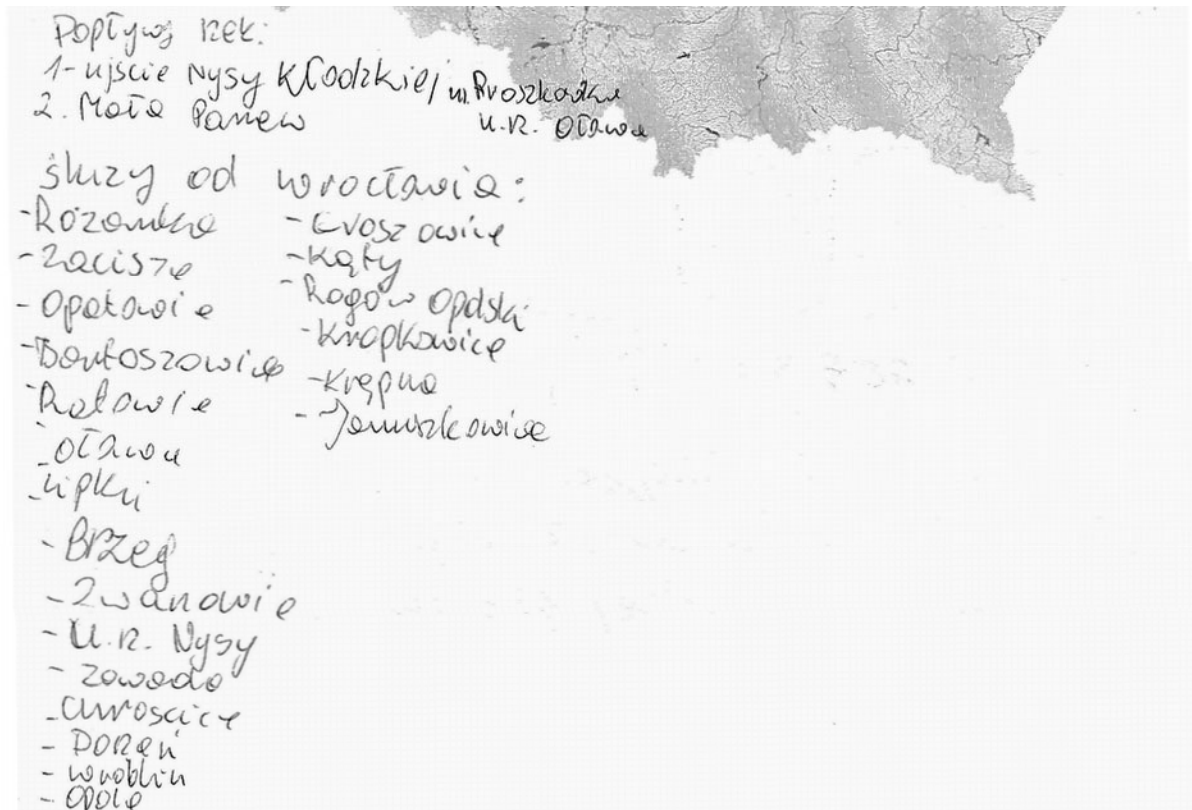 Dopływy rzek:
1- ujście Nysy Kłodzkiej m. Proszkówka
2. Mała Panew u.r. Oława
śluzy od Wrocławia:
- Różanka
- Zacisze
- Opatowie
- Bartoszowice
- Ratowie
- Oława
- Lipki
- Brzeg
- Zwanowie
- U.R. Nysy
- Zawada
- Chroscice
- Dobzeń
- Wróblin
- Opole
- Groszowice
- Kąty
- Rogów Opolski
- Krapkowice
- Krępna
- Januszkowice